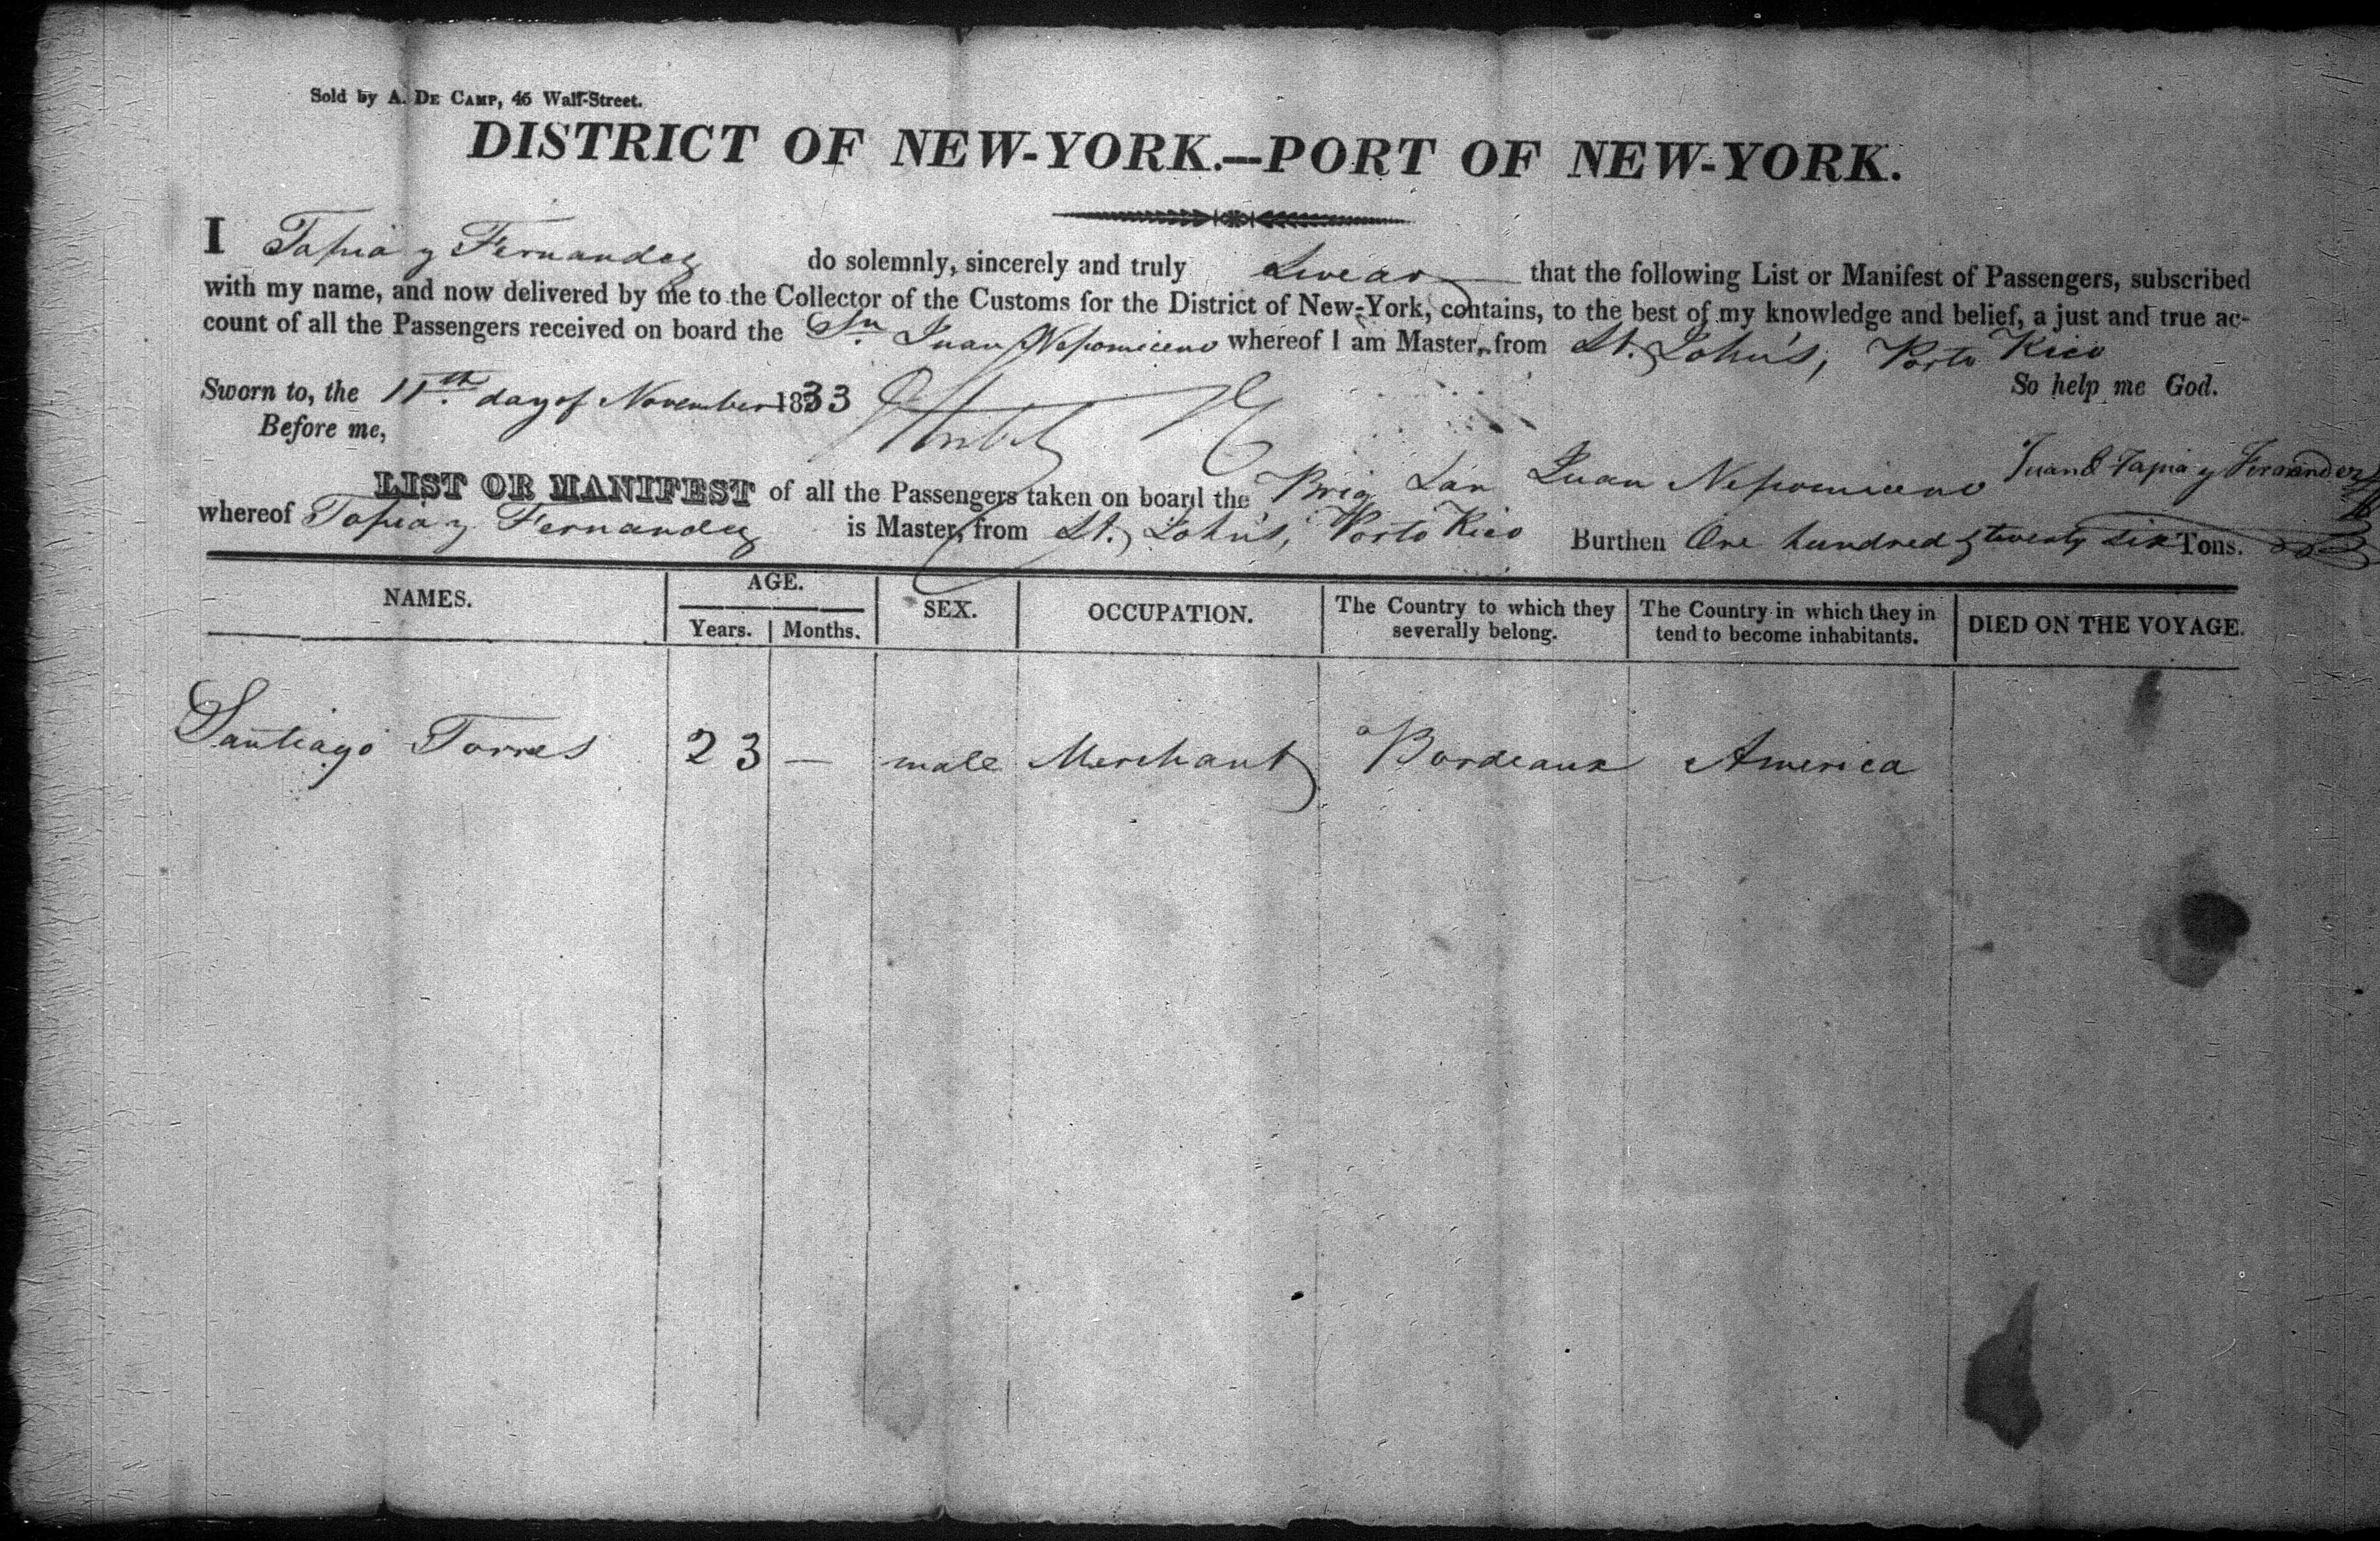 Sold by A. DE CAMP, 46 Wall-Street.
DISTRICT OF NEW-YORK.—PORT OF NEW-YORK.
I Tapia y Fernandez do solemnly, sincerely and truly Swear that the following List or Manifest of Passengers, subscribed
with my name, and now delivered by me to the Collector of the Customs for the District of New-York, contains, to the best of my knowledge and belief, a just and true ac-
count of all the Passengers received on board the Sn. Juan Nepomiceno whereof I am Master, from St. John's, Porto Rico
Sworn to, the 11th day of November 1833 So help me God.
Before me,
Juan J Tapia y Fernandez
LIST OR MANIFEST of all the Passengers taken on board the Brig San Juan Nepomiceno
whereof Tapia y Fernandez is Master, from St. John's, Porto Rico Burthen One hundred & twenty six Tons.
NAMES. AGE. SEX. OCCUPATION. The Country to which they severally belong. The Country in which they in tend to become inhabitants. DIED ON THE VOYAGE.
Years. Months.
Santiago Torres 23 — male Merchant Bordeaux America